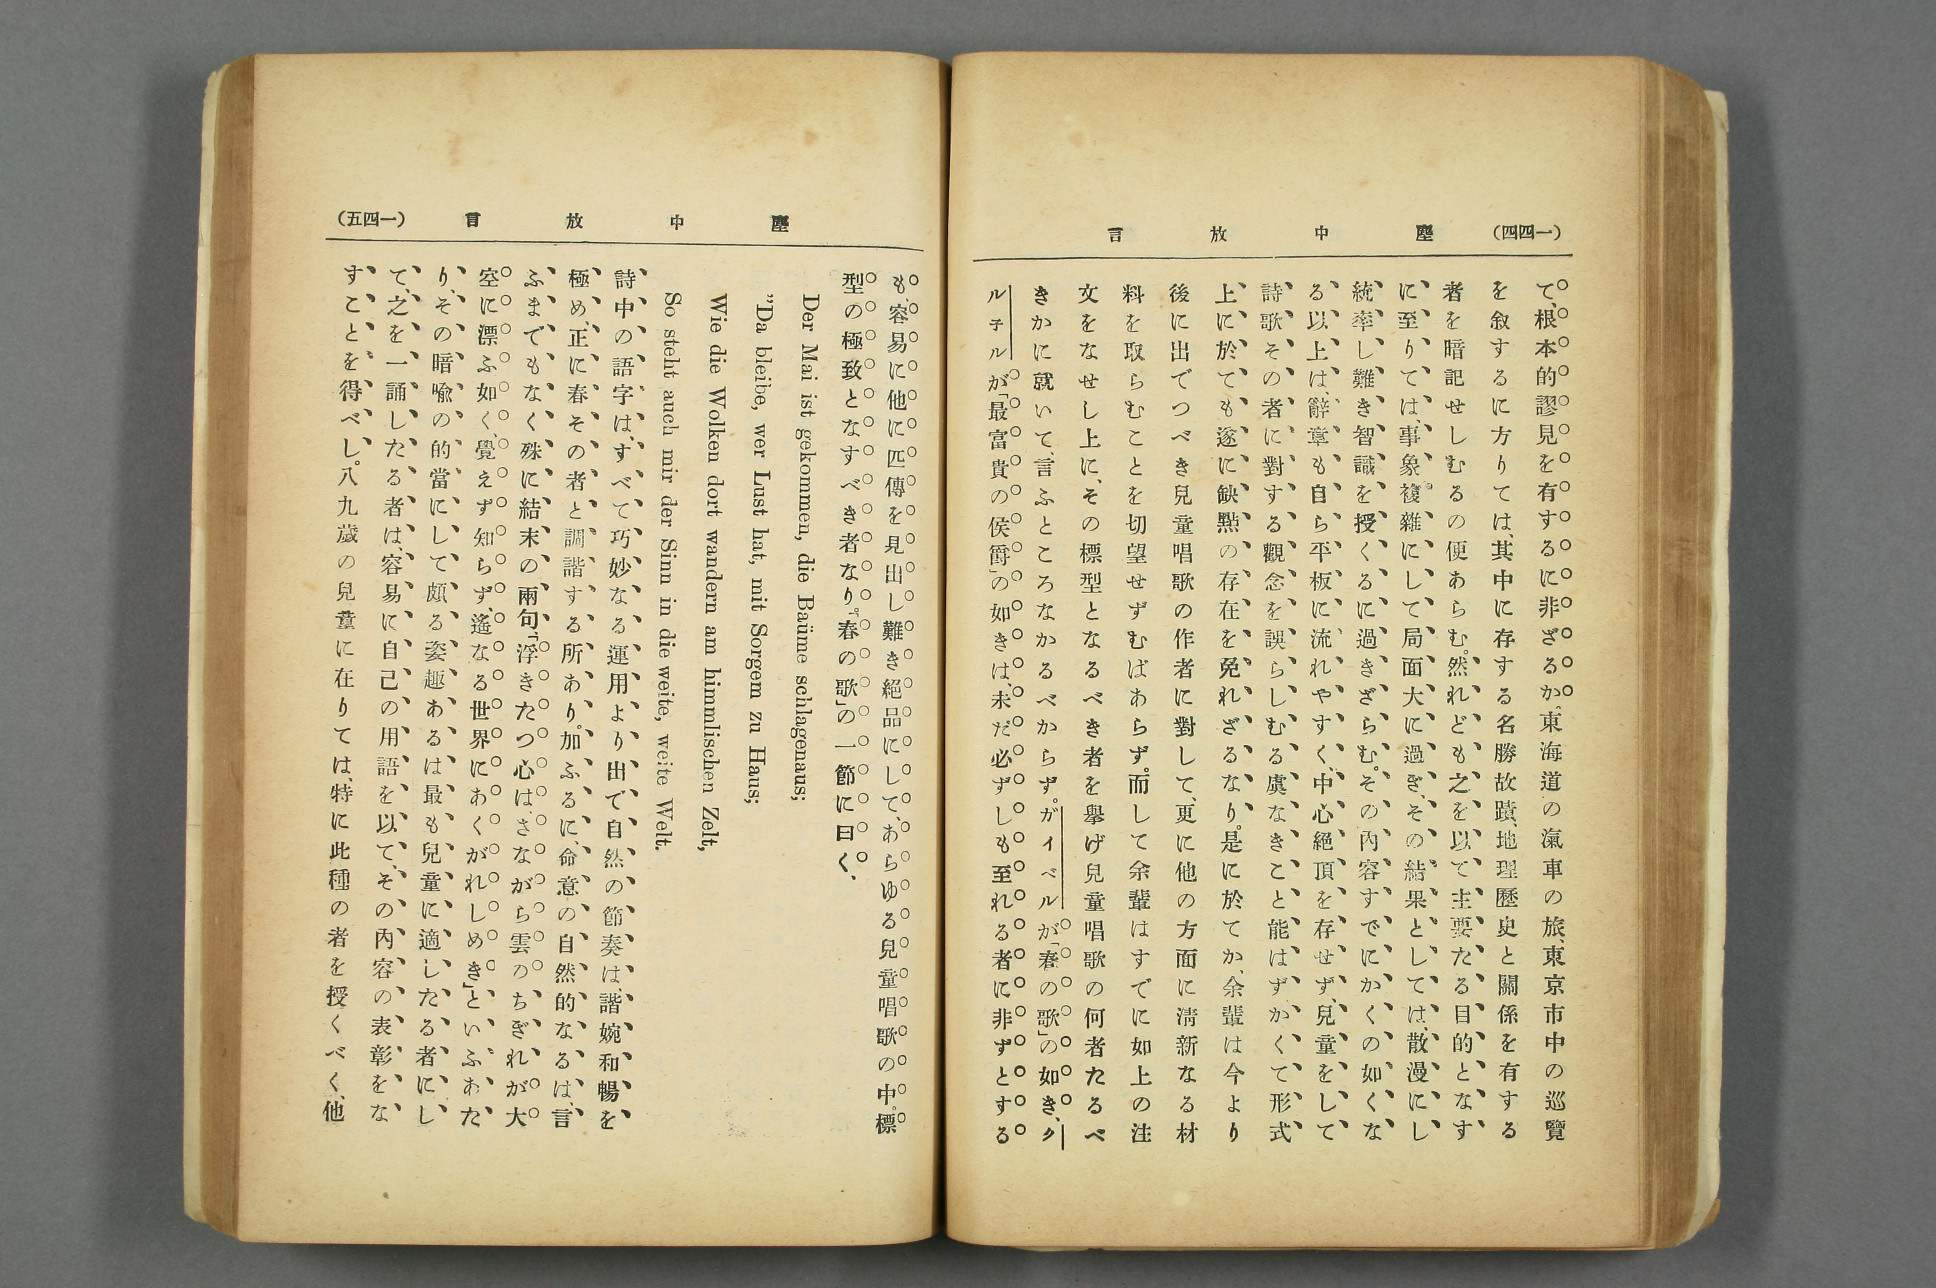 (一四四) 塵中放言
て、根本的謬見を有するに非ざるか。東海道の瀛車の旅、東京市中の巡覽
を叙するに方りては、其中に存する名勝故蹟、地理歷史と關係を有する
者を暗記せしむるの便あらむ。然れども之を以て主要たる目的となす
に至りては、事象複雜にして局面大に過ぎ、その結果としては、散漫にし
統率し難き智識を授くるに過きざらむ。その內容すでにかくの如くな
る以上は、辭章も自ら平板に流れやすく、中心絕頂を存せず、兒童をして
詩歌その者に對する觀念を誤らしむる虞なきこと能はず、かくて形式
上に於ても遂に缺點の存在を免れざるなり。是に於てか、余輩は今より
後に出でつべき兒童唱歌の作者に對して、更に他の方面に淸新なる材
料を取らむことを切望せずむばあらず。而して余輩はすでに如上の注
文をなせし上に、その標型となるべき者を擧げ兒童唱歌の何者たるべ
きかに就いて、言ふところなかるべからず。ガイベルが「春の歌」の如き、ク
ル子ルが「最富貴の侯爵」の如きは、未だ必ずしも至れる者に非ずとする
塵中放言 (一四五)
も、容易に他に匹儔を見出し難き絕品にして、あらゆる兒童唱歌の中、標
型の極致となすべき者なり。「春の歌」の一節に曰く、
Der Mai ist gekommen, die Baüme schlagenaus;
"Da bleibe, wer Lust hat, mit Sorgem zu Haus;
Wie die Wolken dort wandern am himmlischen Zelt,
So steht auch mir der Sinn in die weite, weite Welt.
詩中の語字は、すべて巧妙なる運用より出で自然の節奏は、諧婉和暢を
極め正に春その者と調諧する所あり。加ふるに、命意の自然的なるは、言
ふまでもなく殊に結末の兩句、「浮きたつ心は、さながら雲のちぎれが大
空に漂ふ如く、覺えず知らず、遙なる世界にあくがれしめき」といふあた
り、その暗喩の的當にして頗る姿趣あるは最も兒童に適したる者にし
て、之を一誦したる者は、容易に自己の用語を以て、その內容の表彰をな
すことを得べし。八九歲の兒童に在りては、特に此種の者を授くべく、他